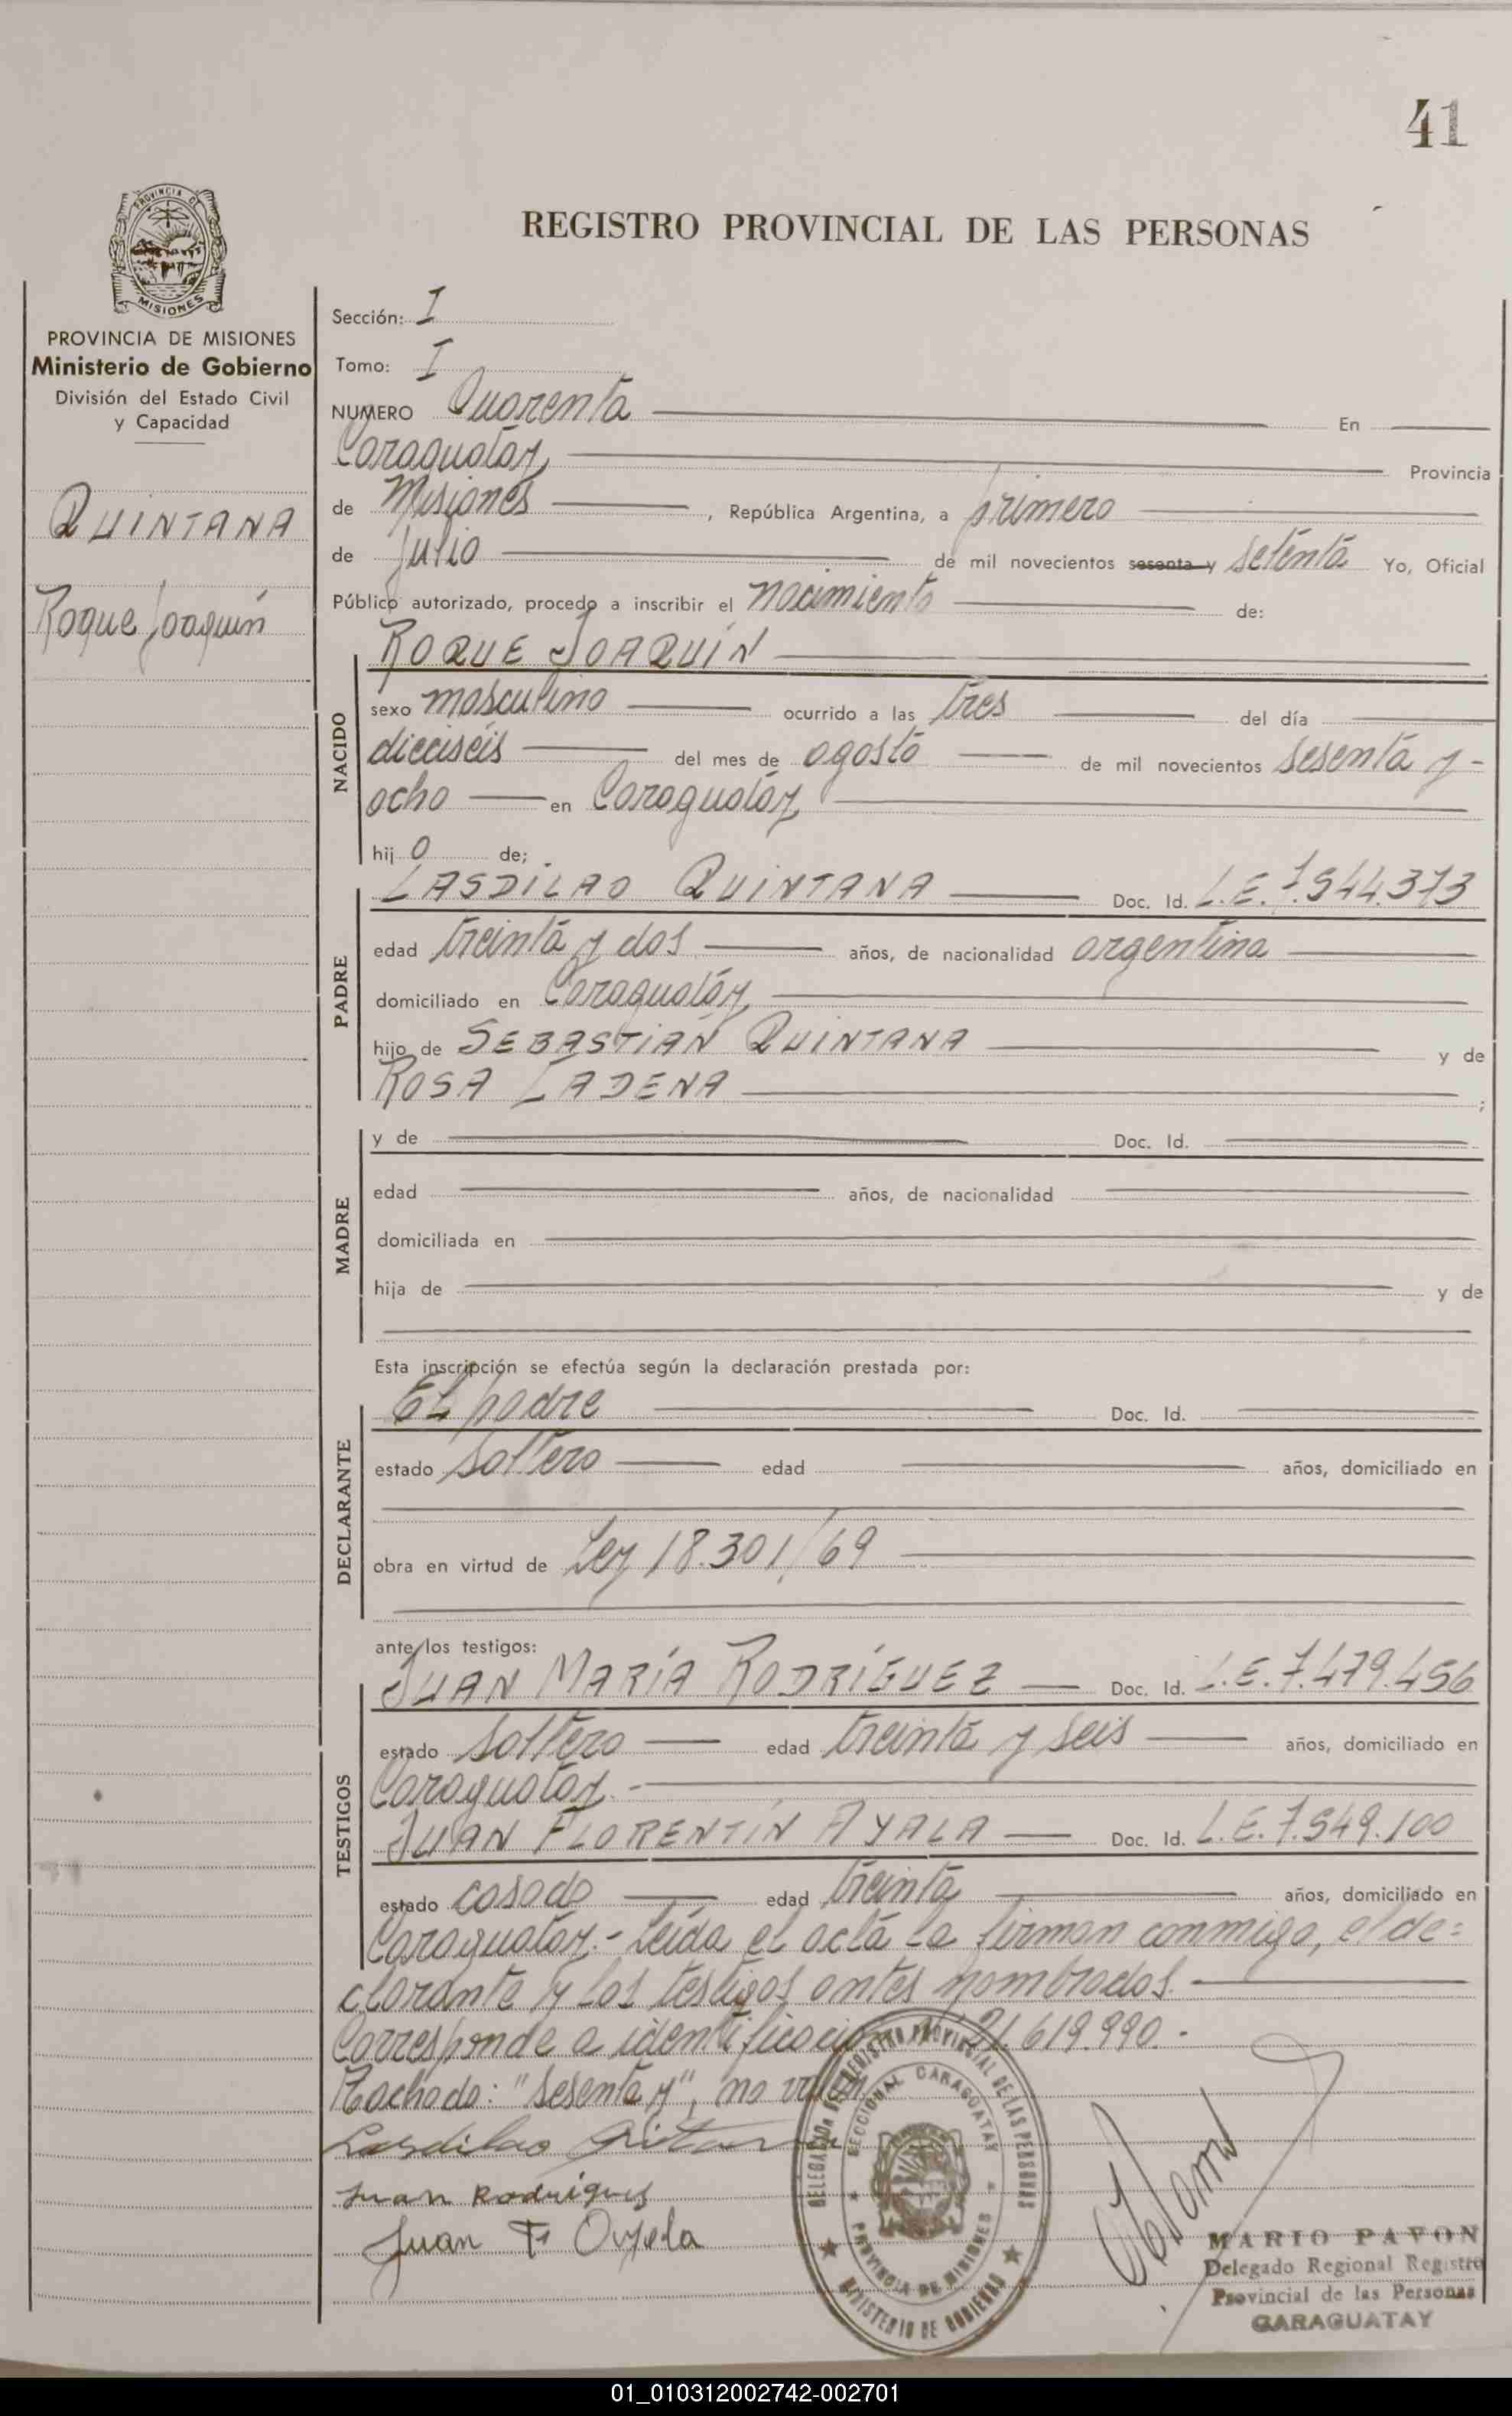 41
PROVINCIA DE
MISIONES
REGISTRO PROVINCIAL DE LAS PERSONAS
PROVINCIA DE MISIONES
Ministerio de Gobierno
División del Estado Civil
y Capacidad
QUINTANA
Roque Joaquín
Sección: I
Tomo: I
NUMERO Cuarenta En
Caraguatay Provincia
de Misiones, República Argentina, a primero
de Julio de mil novecientos sesenta y setenta Yo, Oficial
Público autorizado, procedo a inscribir el nacimiento de:
ROQUE JOAQUÍN
NACIDO
sexo masculino ocurrido a las tres del día
dieciséis del mes de agosto de mil novecientos sesenta y
ocho en Caraguatay
hijo de;
PADRE
LASDILAO QUINTANA Doc. Id. L.E. 7.544.373
edad treinta y dos años, de nacionalidad argentina
domiciliado en Caraguatay
hijo de SEBASTIÁN QUINTANA y de
ROSA LADENA ;
MADRE
y de Doc. Id.
edad años, de nacionalidad
domiciliada en
hija de y de
Esta inscripción se efectúa según la declaración prestada por:
DECLARANTE
El padre Doc. Id.
estado soltero edad años, domiciliado en
obra en virtud de Ley 18.301/69
ante los testigos:
TESTIGOS
JUAN MARÍA RODRÍGUEZ Doc. Id. L.E. 7.479.456
estado soltero edad treinta y seis años, domiciliado en
Caraguatay.-
JUAN FLORENTÍN AYALA Doc. Id. L.E. 7.549.100
estado casado edad treinta años, domiciliado en
Caraguatay.- Leída el acta la firman conmigo, el de=
clarante y los testigos antes nombrados.
Corresponde a identificación 21.619.990.-
Tachado: "sesenta y", no valen
Lasdilao
Juan Rodrigues
Juan F
DELEGACIÓN DEL REGISTRO PROVINCIAL DE LAS PERSONAS
SECCIONAL CARAGUATAY
PROVINCIA DE MISIONES
MINISTERIO DE GOBIERNO
MARIO PAVON
Delegado Regional Registro
Provincial de las Personas
CARAGUATAY
01_010312002742-002701